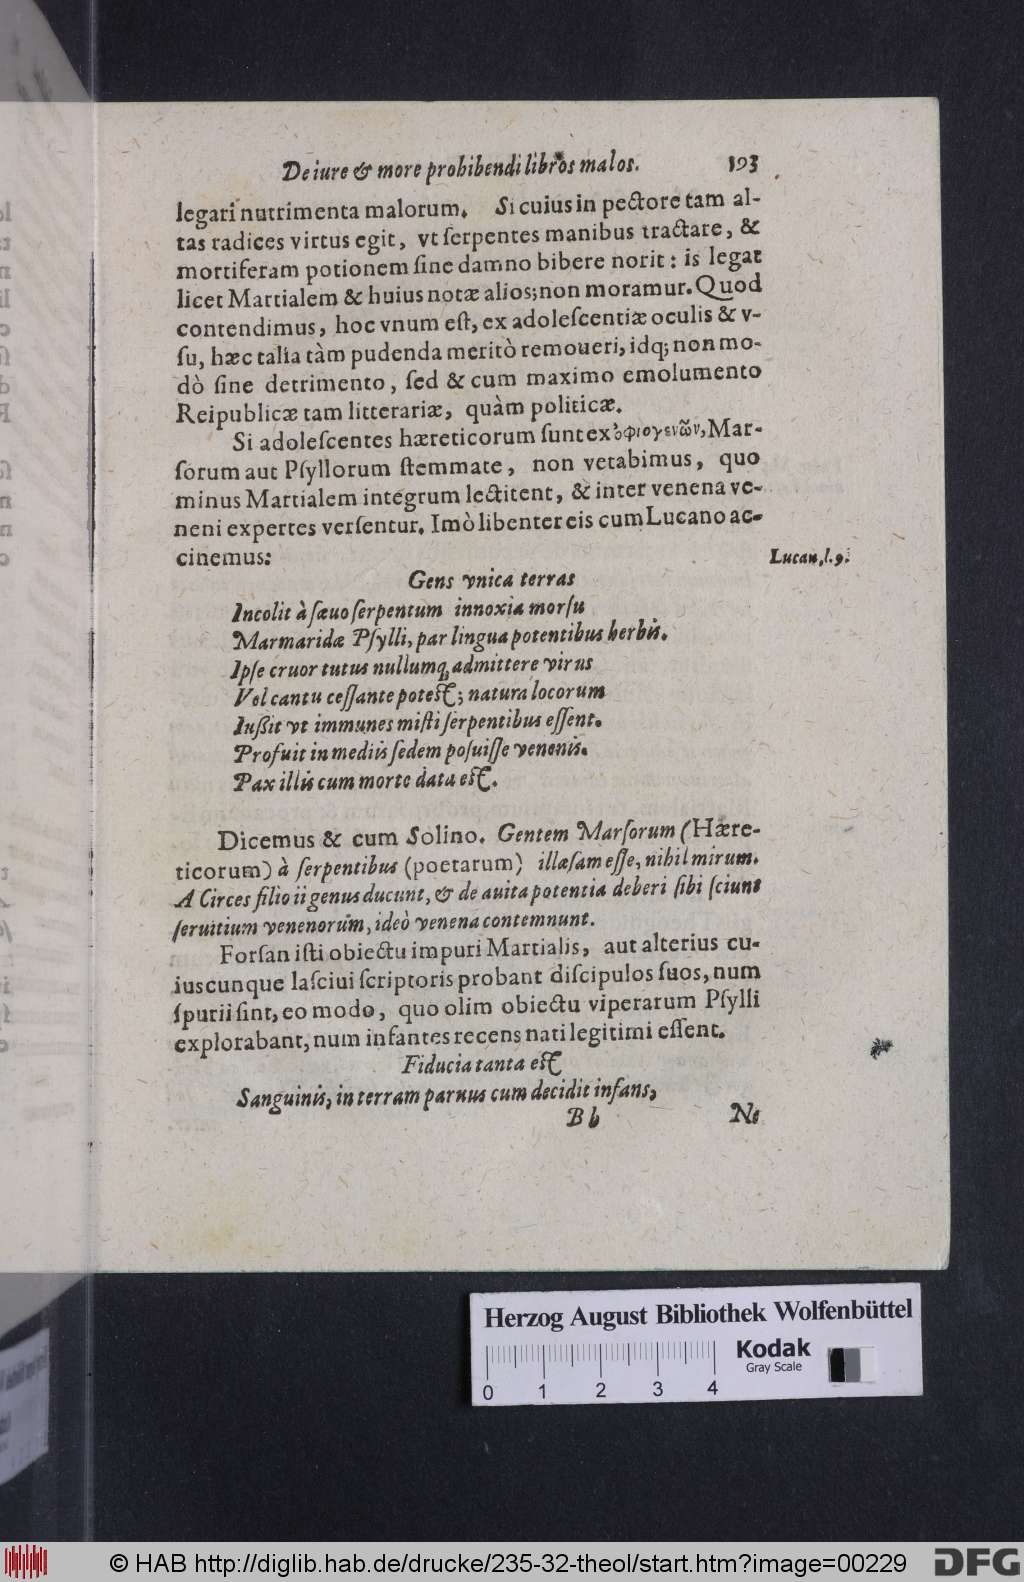 De iure & more prohibendi libros malos. 193
legari nutrimenta malorum. Si cuius in pectore tam al-
tas radices virtus egit, vt ſerpentes manibus tractare, &
mortiferam potionem ſine damno bibere norit: is legat
licet Martialem & huius notæ alios; non moramur. Quod
contendimus, hoc vnum eſt, ex adoleſcentiæ oculis & v-
ſu, hæc talia tàm pudenda meritò remoueri, idq; non mo-
dò ſine detrimento, ſed & cum maximo emolumento
Reipublicæ tam litterariæ, quàm politicæ.
Si adoleſcentes hæreticorum ſunt ex ὀφιογενῶν, Mar-
ſorum aut Pſyllorum ſtemmate, non vetabimus, quo
minus Martialem integrum lectitent, & inter venena ve-
neni expertes verſentur. Imò libenter eis cum Lucano ac-
cinemus:
Lucan, l. 9.
Gens vnica terras
Incolit à ſæuo ſerpentum innoxia morſu
Marmaridæ Pſylli, par lingua potentibus herbis.
Ipſe cruor tutus nullumq; admittere virus
Vel cantu ceſſante poteſt; natura locorum
Iußit vt immunes miſti ſerpentibus eſſent.
Profuit in mediis ſedem poſuiſſe venenis.
Pax illis cum morte data eſt.
Dicemus & cum Solino. Gentem Marſorum (Hære-
ticorum) à ſerpentibus (poetarum) illæſam eſſe, nihil mirum.
A Circes filio ii genus ducunt, & de auita potentia deberi ſibi ſciunt
ſeruitium venenorum, ideò venena contemnunt.
Forſan iſti obiectu impuri Martialis, aut alterius cu-
iuscunque laſciui ſcriptoris probant diſcipulos ſuos, num
ſpurii ſint, eo modo, quo olim obiectu viperarum Pſylli
explorabant, num infantes recens nati legitimi eſſent.
Fiducia tanta eſt
Sanguinis, in terram paruus cum decidit infans,
B b Ne
Herzog August Bibliothek Wolfenbüttel
Kodak
Gray Scale
0 1 2 3 4
© HAB http://diglib.hab.de/drucke/235-32-theol/start.htm?image=00229
DFG